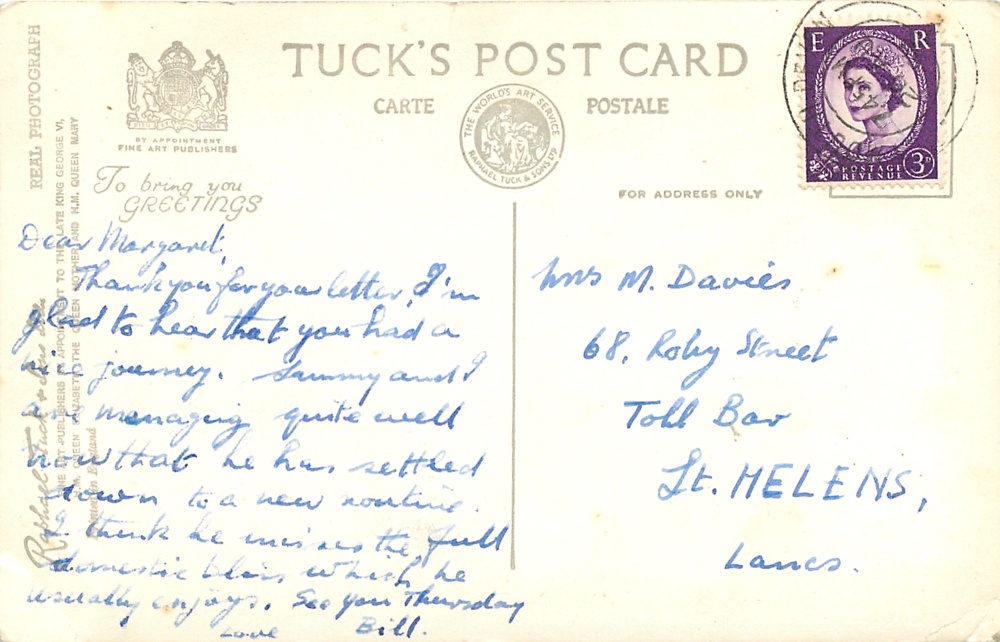 TUCK'S POST CARD
CARTE POSTALE
BY APPOINTMENT
FINE ART PUBLISHERS
THE WORLD'S ART SERVICE
RAPHAEL TUCK & SONS LTD
FOR ADDRESS ONLY
E R
POSTAGE
REVENUE
3D
REAL PHOTOGRAPH
Raphael Tuck & Sons Ltd
FINE ART PUBLISHERS BY APPOINTMENT TO THE LATE KING GEORGE VI,
H.M. QUEEN ELIZABETH THE QUEEN MOTHER AND H.M. QUEEN MARY
Printed in England
To bring you
GREETINGS
Dear Margaret,
Thank you for your letter, I'm
glad to hear that you had a
nice journey. Sammy and I
are managing quite well
now that he has settled
down to a new routine.
I think he misses the full
domestic bliss which he
usually enjoys. See you Thursday
Love Bill.
Mrs M. Davies
68, Roby Street
Toll Bar
St. HELENS,
Lancs.